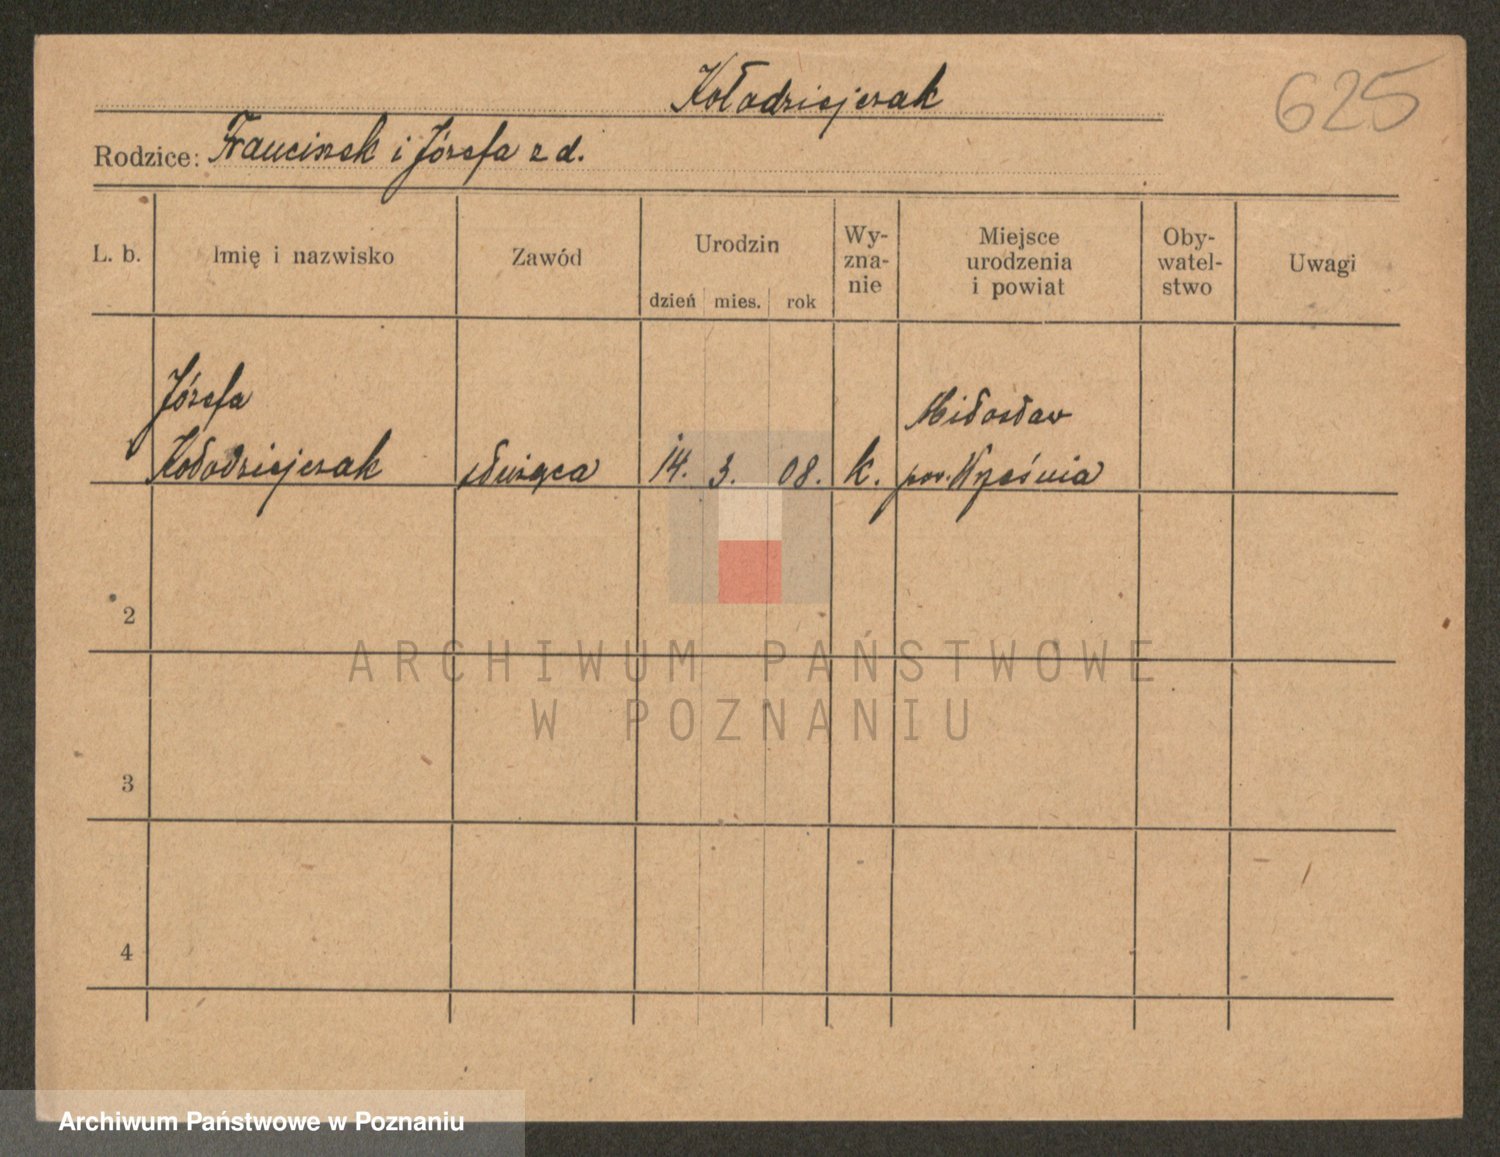 Kołodziejczak
625
Rodzice: Franciszek i Józefa z d.
L. b.
Imię i nazwisko
Zawód
Urodzin
dzień mies. rok
Wy-
zna-
nie
Miejsce
urodzenia
i powiat
Oby-
watel-
stwo
Uwagi
Józefa
Kołodziejczak
służąca
14. 3. 08.
k.
Miłosław
pow. Września
2
3
4
ARCHIWUM PAŃSTWOWE
W POZNANIU
Archiwum Państwowe w Poznaniu